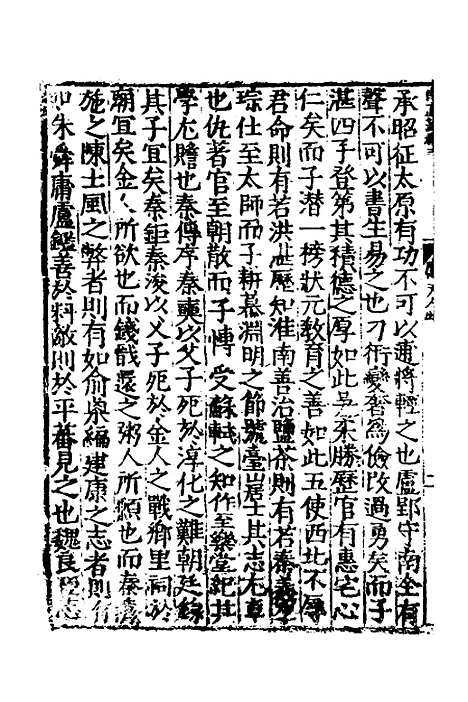 承昭征太原有功不可以遽將輕之也盧郢守南全有
聲不可以書生易之也刁衎變奢爲儉改過勇矣而子
湛四子登第其積德之厚如此吳柔勝歷官有惠宅心
仁矣而子潛一榜狀元教育之善如此五使西北不辱
君命則有若洪 歷知淮南善治鹽茶則有若秦羲
琮仕至太師而子耕慕淵明之節號臺山居士其志尤卓
也仇著官至朝散而子愽受蘇軾之知作至樂堂紀其
學尤贍也秦傳序秦奭以父子死於淳化之難朝廷錄
其子宜矣秦鉅秦浚以父子死於金人之戰鄉里祠於
廟宜矣金人所欲也而錢戩還之粥人所煩也而秦
施之陳土風之弊者則有如俞 編建康之志者則有
如朱舜庸盧鑑善於料敵則於平 見之也魏良臣